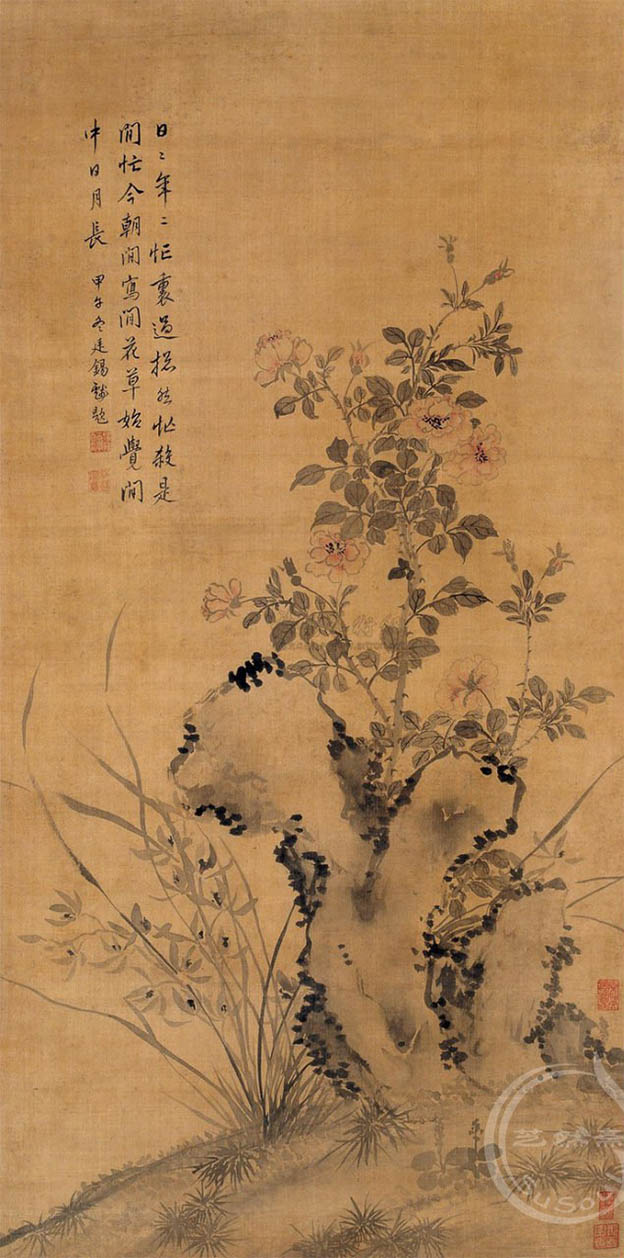 日〻年〻忙裏過揔然忙殺是
閒忙今朝閒寫閒花草始覺閒
中日月長
甲午冬廷錫諸題